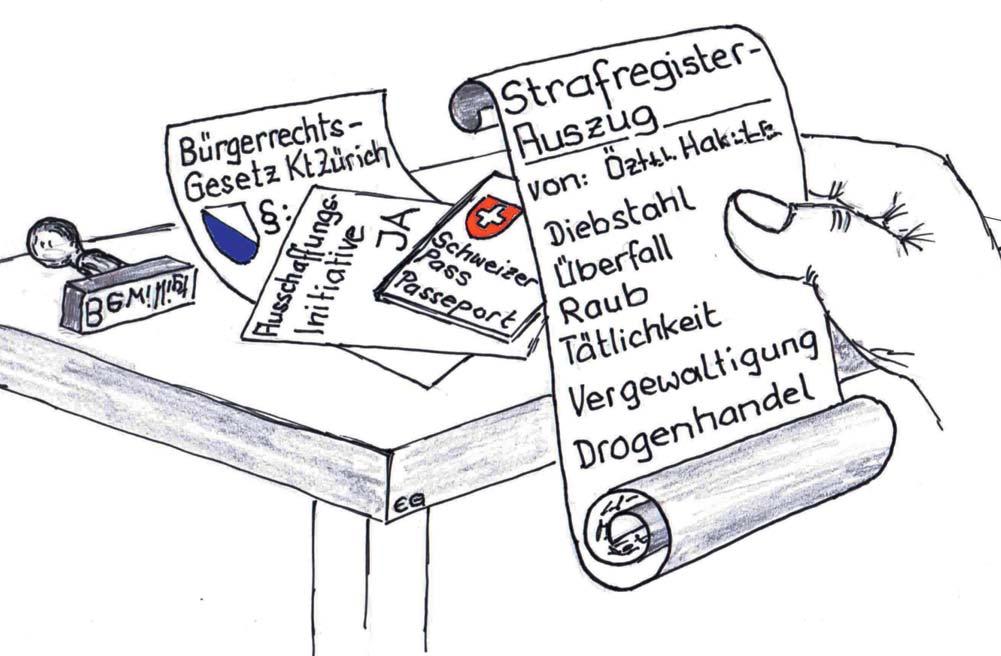 Bürgerrechts-
Gesetz Kt Zürich
§:
Ausschaffungs-
Initiative
JA
Schweizer
Pass
Passeport
Strafregister-
Auszug
von:
Diebstahl
Überfall
Raub
Tätlichkeit
Vergewaltigung
Drogenhandel
EG